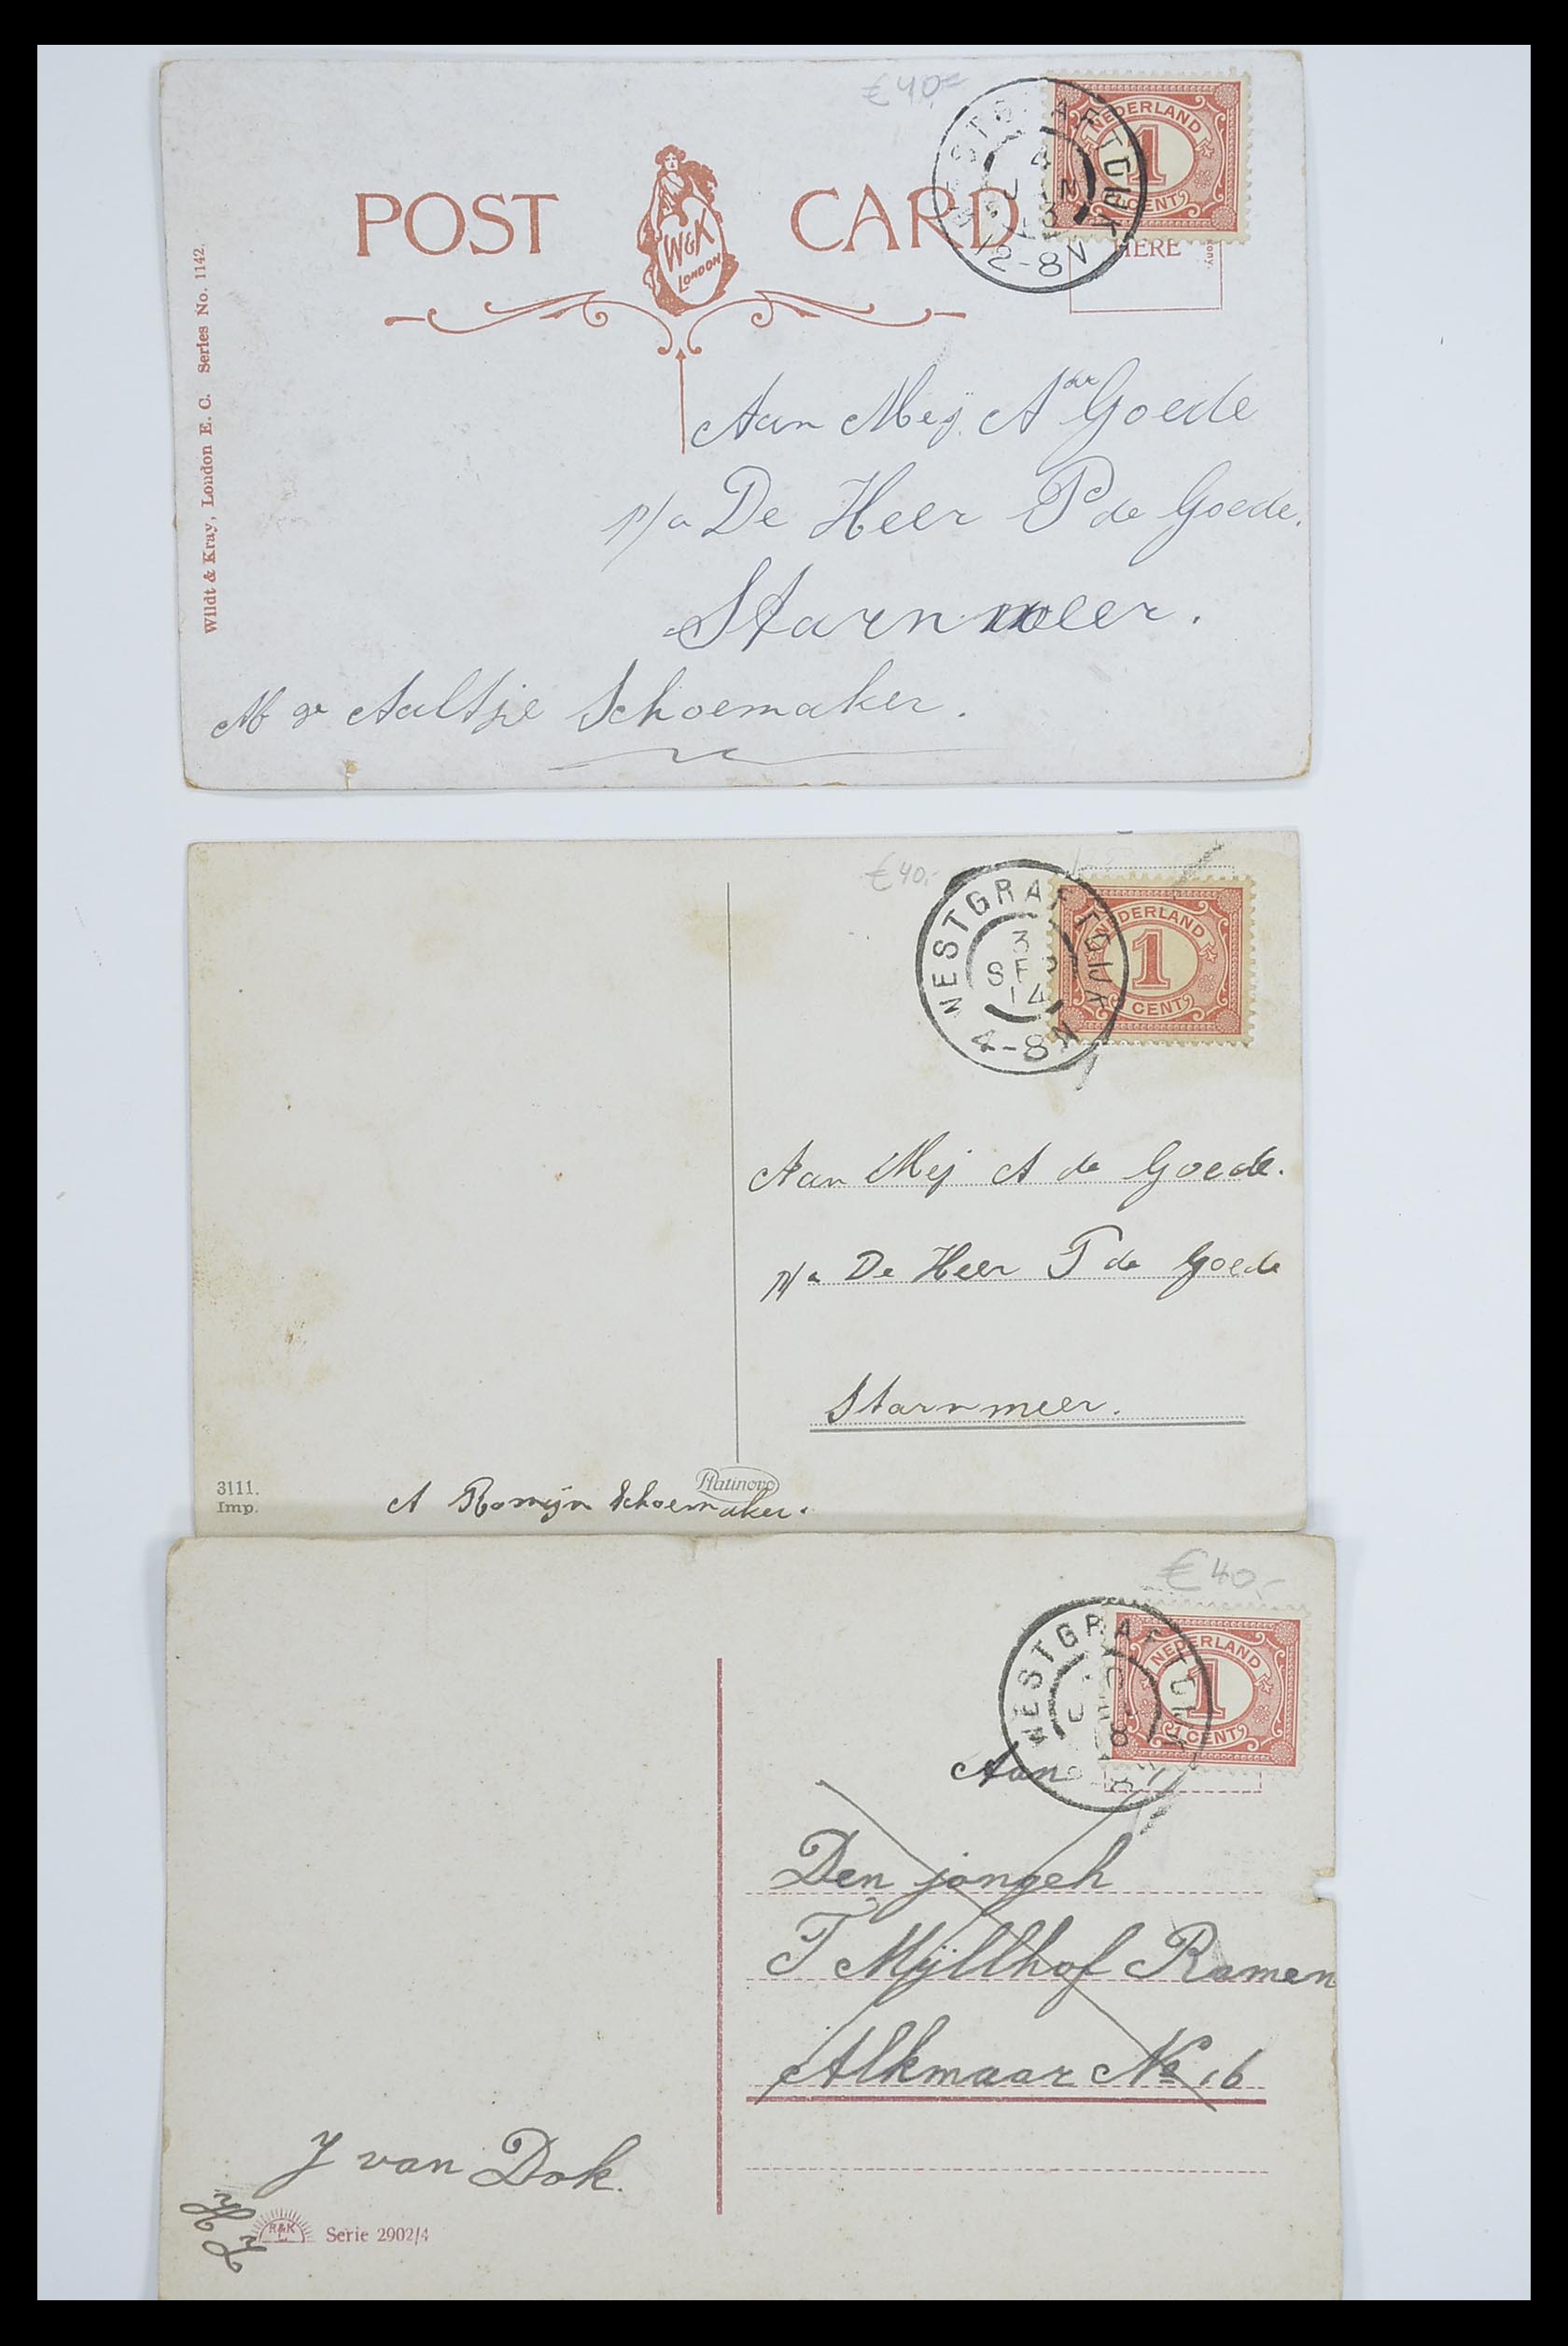 €40,-
POST CARD
W&K
LONDON
NEDERLAND
1
CENT
4
12-8N
HERE
Wildt & Kray, London E. C. Series No. 1142.
Aan Mej. A de Goede
p/a De Heer P de Goede.
Starnmeer.
Aaltje Schoemaker.
€40,-
WESTGRAFTDIJK
3
SEP
14
4-8N
NEDERLAND
1
CENT
Aan Mej A de Goede.
p/a De Heer P de Goede
Starnmeer.
3111.
Imp.
Platinovo
A Romijn Schoemaker.
€40,-
WESTGRAFTDIJK
NEDERLAND
1
1 CENT
Aan
Den jongeh
T Mijllhof Ramen
Alkmaar No 16
J van Dok.
R&K
L
Serie 2902/4